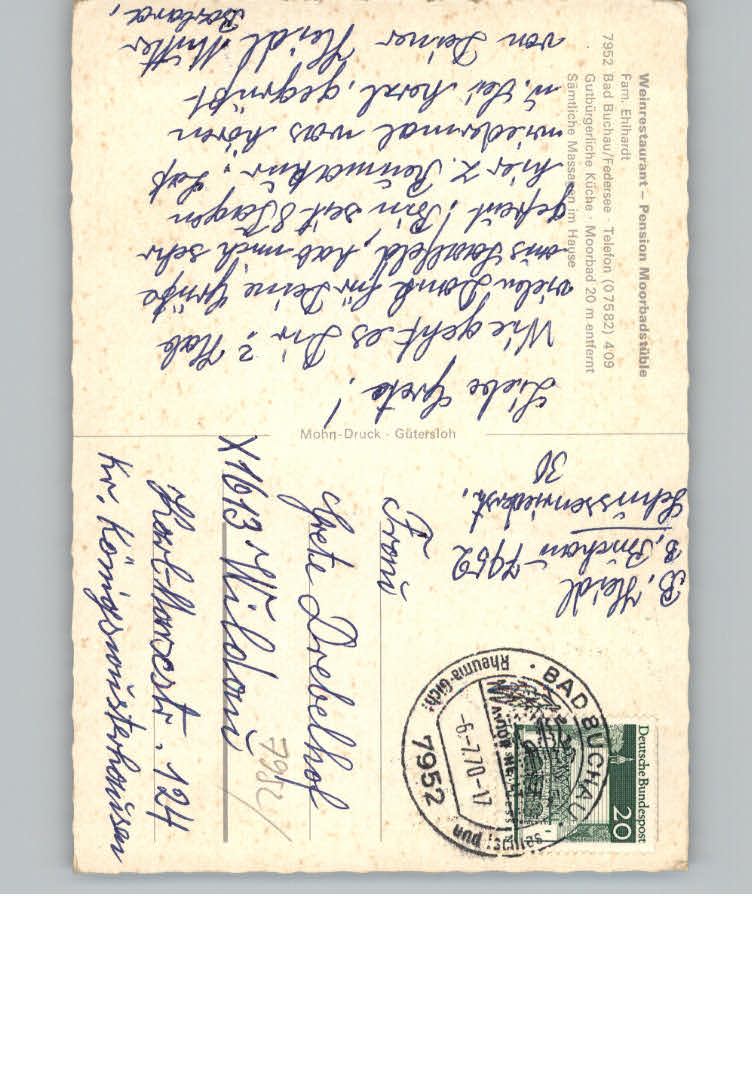 Weinrestaurant – Pension Moorbadstüble
Fam. Ehlhardt
7952 Bad Buchau/Federsee · Telefon (07582) 409
Gutbürgerliche Küche · Moorbad 20 m entfernt
Sämtliche Massagen im Hause
Liebe Grete!
Wie geht es Dir? Hab
vielen Dank für Deine Grüße
aus Saalfeld, hab mich sehr
gefreut! Bin seit 8 Tagen
hier z. Reumakur. Laß
wiedermal was hören
u. sei herzl. gegrüßt
von Deiner Heidl Mutter
Barbara,
Mohn-Druck · Gütersloh
B. Heidl
B. Buchau 7952
Schussenriederst.
30
Deutsche Bundespost
20
BAD BUCHAU
7952
-6.7.70-17
Rheuma-Gicht
Frau
Grete Drebelhof
X1613 Wildau
7952/
Karl-Marxstr. 124
Kr. Königswusterhausen